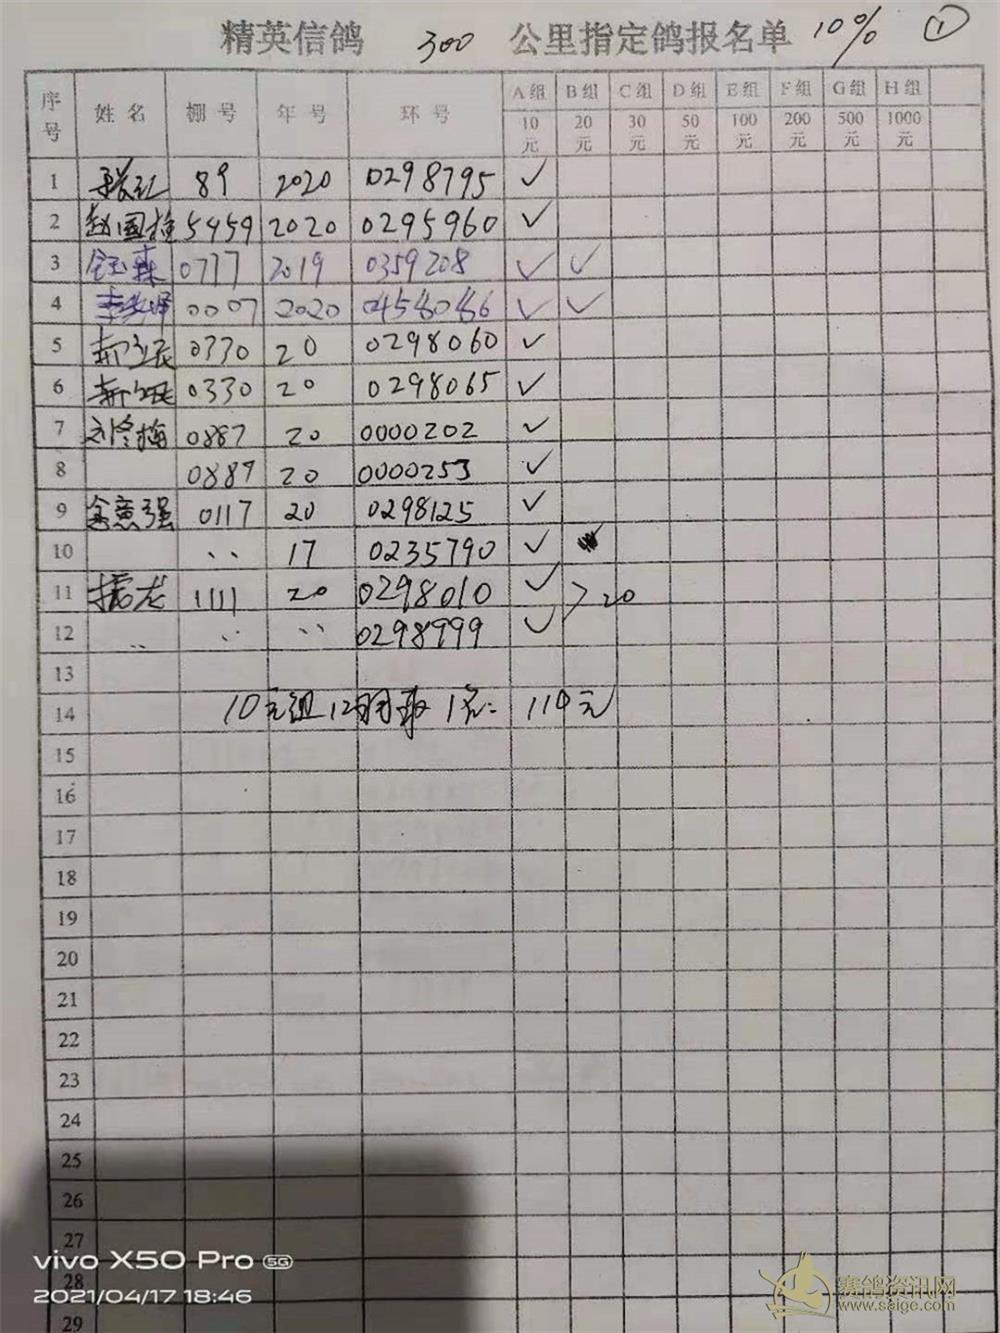 精英信鸽 300 公里指定鸽报名单 10% ①
序号 姓名 棚号 年号 环号 A组 B组 C组 D组 E组 F组 G组 H组
10元 20元 30元 50元 100元 200元 500元 1000元
1 89 2020 0298795 ✓
2 赵国 5459 2020 0295960 ✓
3 钰森 0717 2019 0359208 ✓ ✓
4 0007 2020 ✓ ✓
5 0330 20 0298060 ✓
6 0330 20 0298065 ✓
7 刘冬梅 0887 20 0000202 ✓
8 0887 20 0000253 ✓
9 强 0117 20 0298125 ✓
10 〃 17 0235790 ✓
11 振龙 1111 20 0298010 ✓ > 20
12 〃 〃 〃 0298999 ✓
13
14 10元组12羽取1名: 元
15
16
17
18
19
20
21
22
23
24
25
26
27
vivo X50 Pro 5G
28
2021/04/17 18:46
29
赛鸽资讯网
www.saige.com